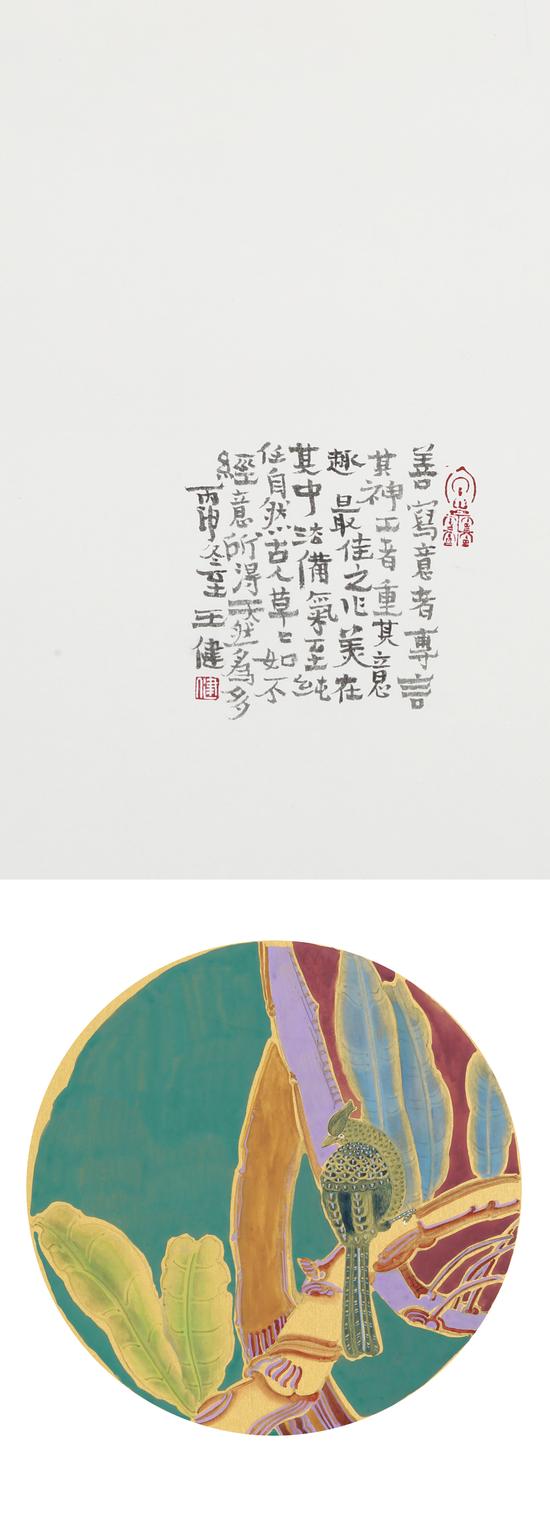 善寫意者專言
其神工者重其意
趣最佳之作美在
其中 備氣至純
任自然古人草草如不
經意所得天然為多
丙申冬至王健
健